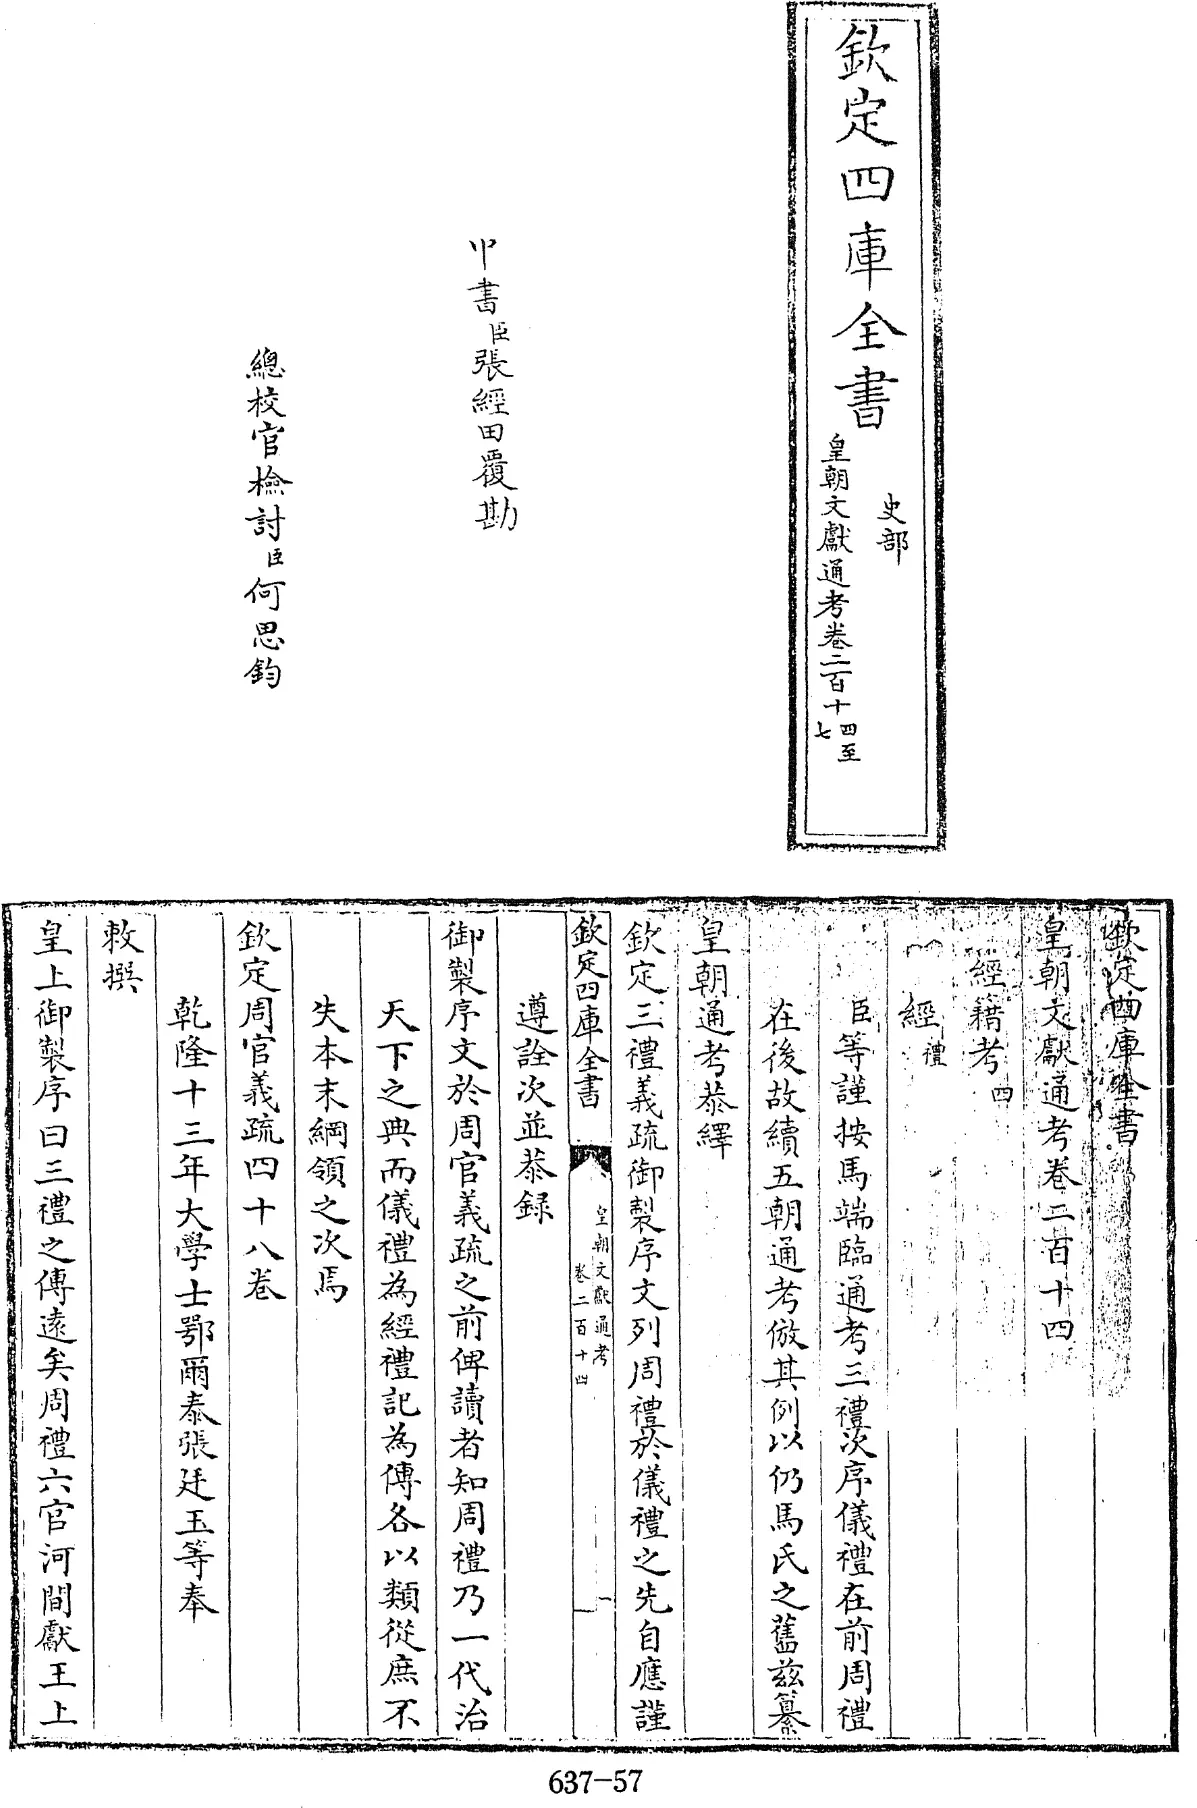 欽定四庫全書
史部
皇朝文獻通考卷二百十四至七
中書臣張經田覆勘
總校官檢討臣何思鈞
欽定四庫全書
皇朝文獻通考卷二百十四
經籍考四
經禮
臣等謹按馬端臨通考三禮次序儀禮在前周禮
在後故續五朝通考倣其例以仍馬氏之舊茲纂
皇朝通考恭繹
欽定三禮義疏御製序文列周禮於儀禮之先自應謹
欽定四庫全書
皇朝文獻通考
卷二百十四
一
遵詮次並恭録
御製序文於周官義疏之前俾讀者知周禮乃一代治
天下之典而儀禮為經禮記為傳各以類從庶不
失本末綱領之次焉
欽定周官義疏四十八卷
乾隆十三年大學士鄂爾泰張廷玉等奉
敕撰
皇上御製序曰三禮之傳遠矣周禮六官河間獻王上
637-57